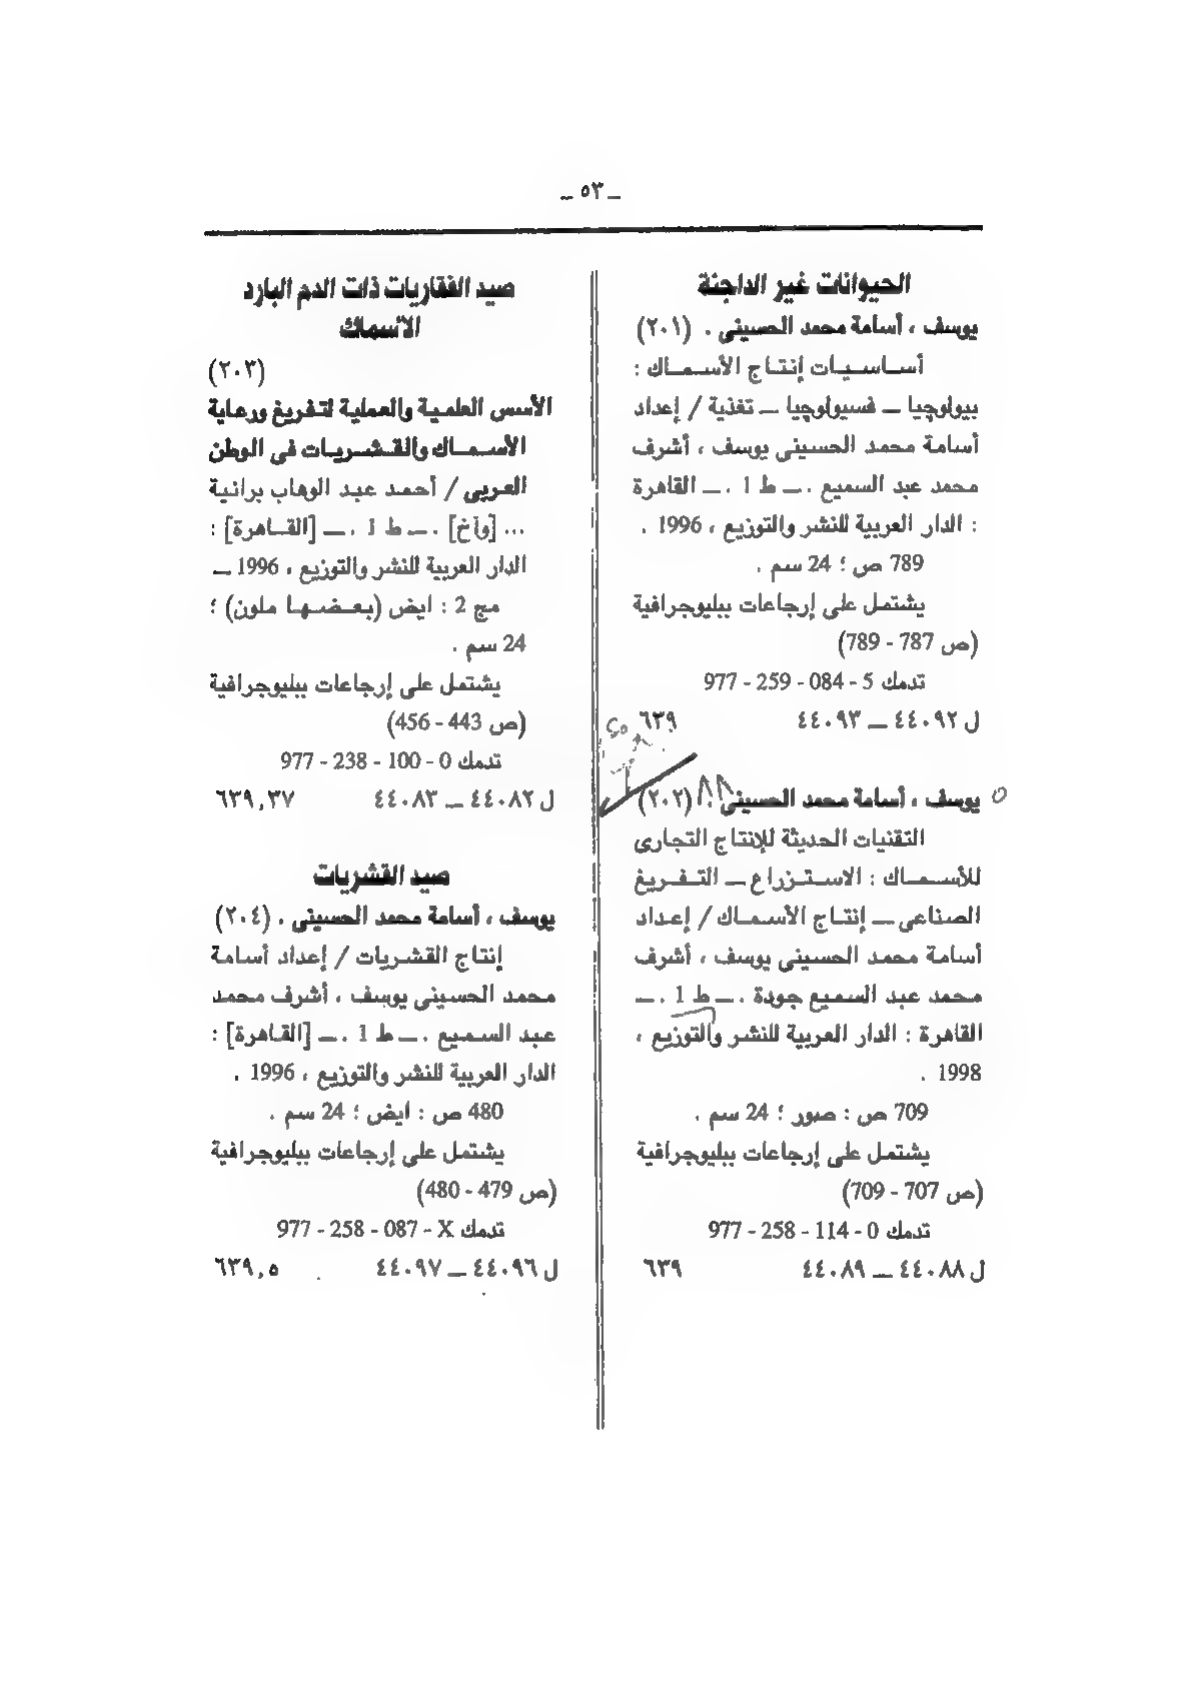 ـ ٥٣ ـ
الحيوانات غير الداجنة
يوسف ، أسامة محمد الحسينى . (٢٠١)
أساسيات إنتاج الأسماك :
بيولوجيا ــ فسيولوجيا ــ تغذية / إعداد
أسامة محمد الحسينى يوسف ، أشرف
محمد عبد السميع . ــ ط 1 . ــ القاهرة
: الدار العربية للنشر والتوزيع ، 1996 .
789 ص ؛ 24 سم .
يشتمل على إرجاعات ببليوجرافية
(ص 787 - 789)
تدمك 5 - 084 - 259 - 977
ل ٤٤٠٩٢ ــ ٤٤٠٩٣ ٦٣٩
يوسف ، أسامة محمد الحسينى . (٢٠٢)
التقنيات الحديثة للإنتاج التجارى
للأسماك : الاستزراع ــ التفريغ
الصناعى ــ إنتاج الأسماك / إعداد
أسامة محمد الحسينى يوسف ، أشرف
محمد عبد السميع جودة . ــ ط 1 . ــ
القاهرة : الدار العربية للنشر والتوزيع ،
1998 .
709 ص : صور ؛ 24 سم .
يشتمل على إرجاعات ببليوجرافية
(ص 707 - 709)
تدمك 0 - 114 - 258 - 977
ل ٤٤٠٨٨ ــ ٤٤٠٨٩ ٦٣٩
صيد الفقاريات ذات الدم البارد
الأسماك
(٢٠٣)
الأسس العلمية والعملية لتفريغ ورعاية
الأسماك والقشريات فى الوطن
العربى / أحمد عبد الوهاب برانية
... [وأخ] . ــ ط 1 . ــ [القاهرة] :
الدار العربية للنشر والتوزيع ، 1996 ــ
مج 2 : ايض (بعضها ملون) ؛
24 سم .
يشتمل على إرجاعات ببليوجرافية
(ص 443 - 456)
تدمك 0 - 100 - 238 - 977
ل ٤٤٠٨٢ ــ ٤٤٠٨٣ ٦٣٩,٣٧
صيد القشريات
يوسف ، أسامة محمد الحسينى . (٢٠٤)
إنتاج القشريات / إعداد أسامة
محمد الحسينى يوسف ، أشرف محمد
عبد السميع . ــ ط 1 . ــ [القاهرة] :
الدار العربية للنشر والتوزيع ، 1996 .
480 ص : ايض ؛ 24 سم .
يشتمل على إرجاعات ببليوجرافية
(ص 479 - 480)
تدمك X - 087 - 258 - 977
ل ٤٤٠٩٦ ــ ٤٤٠٩٧ ٦٣٩,٥